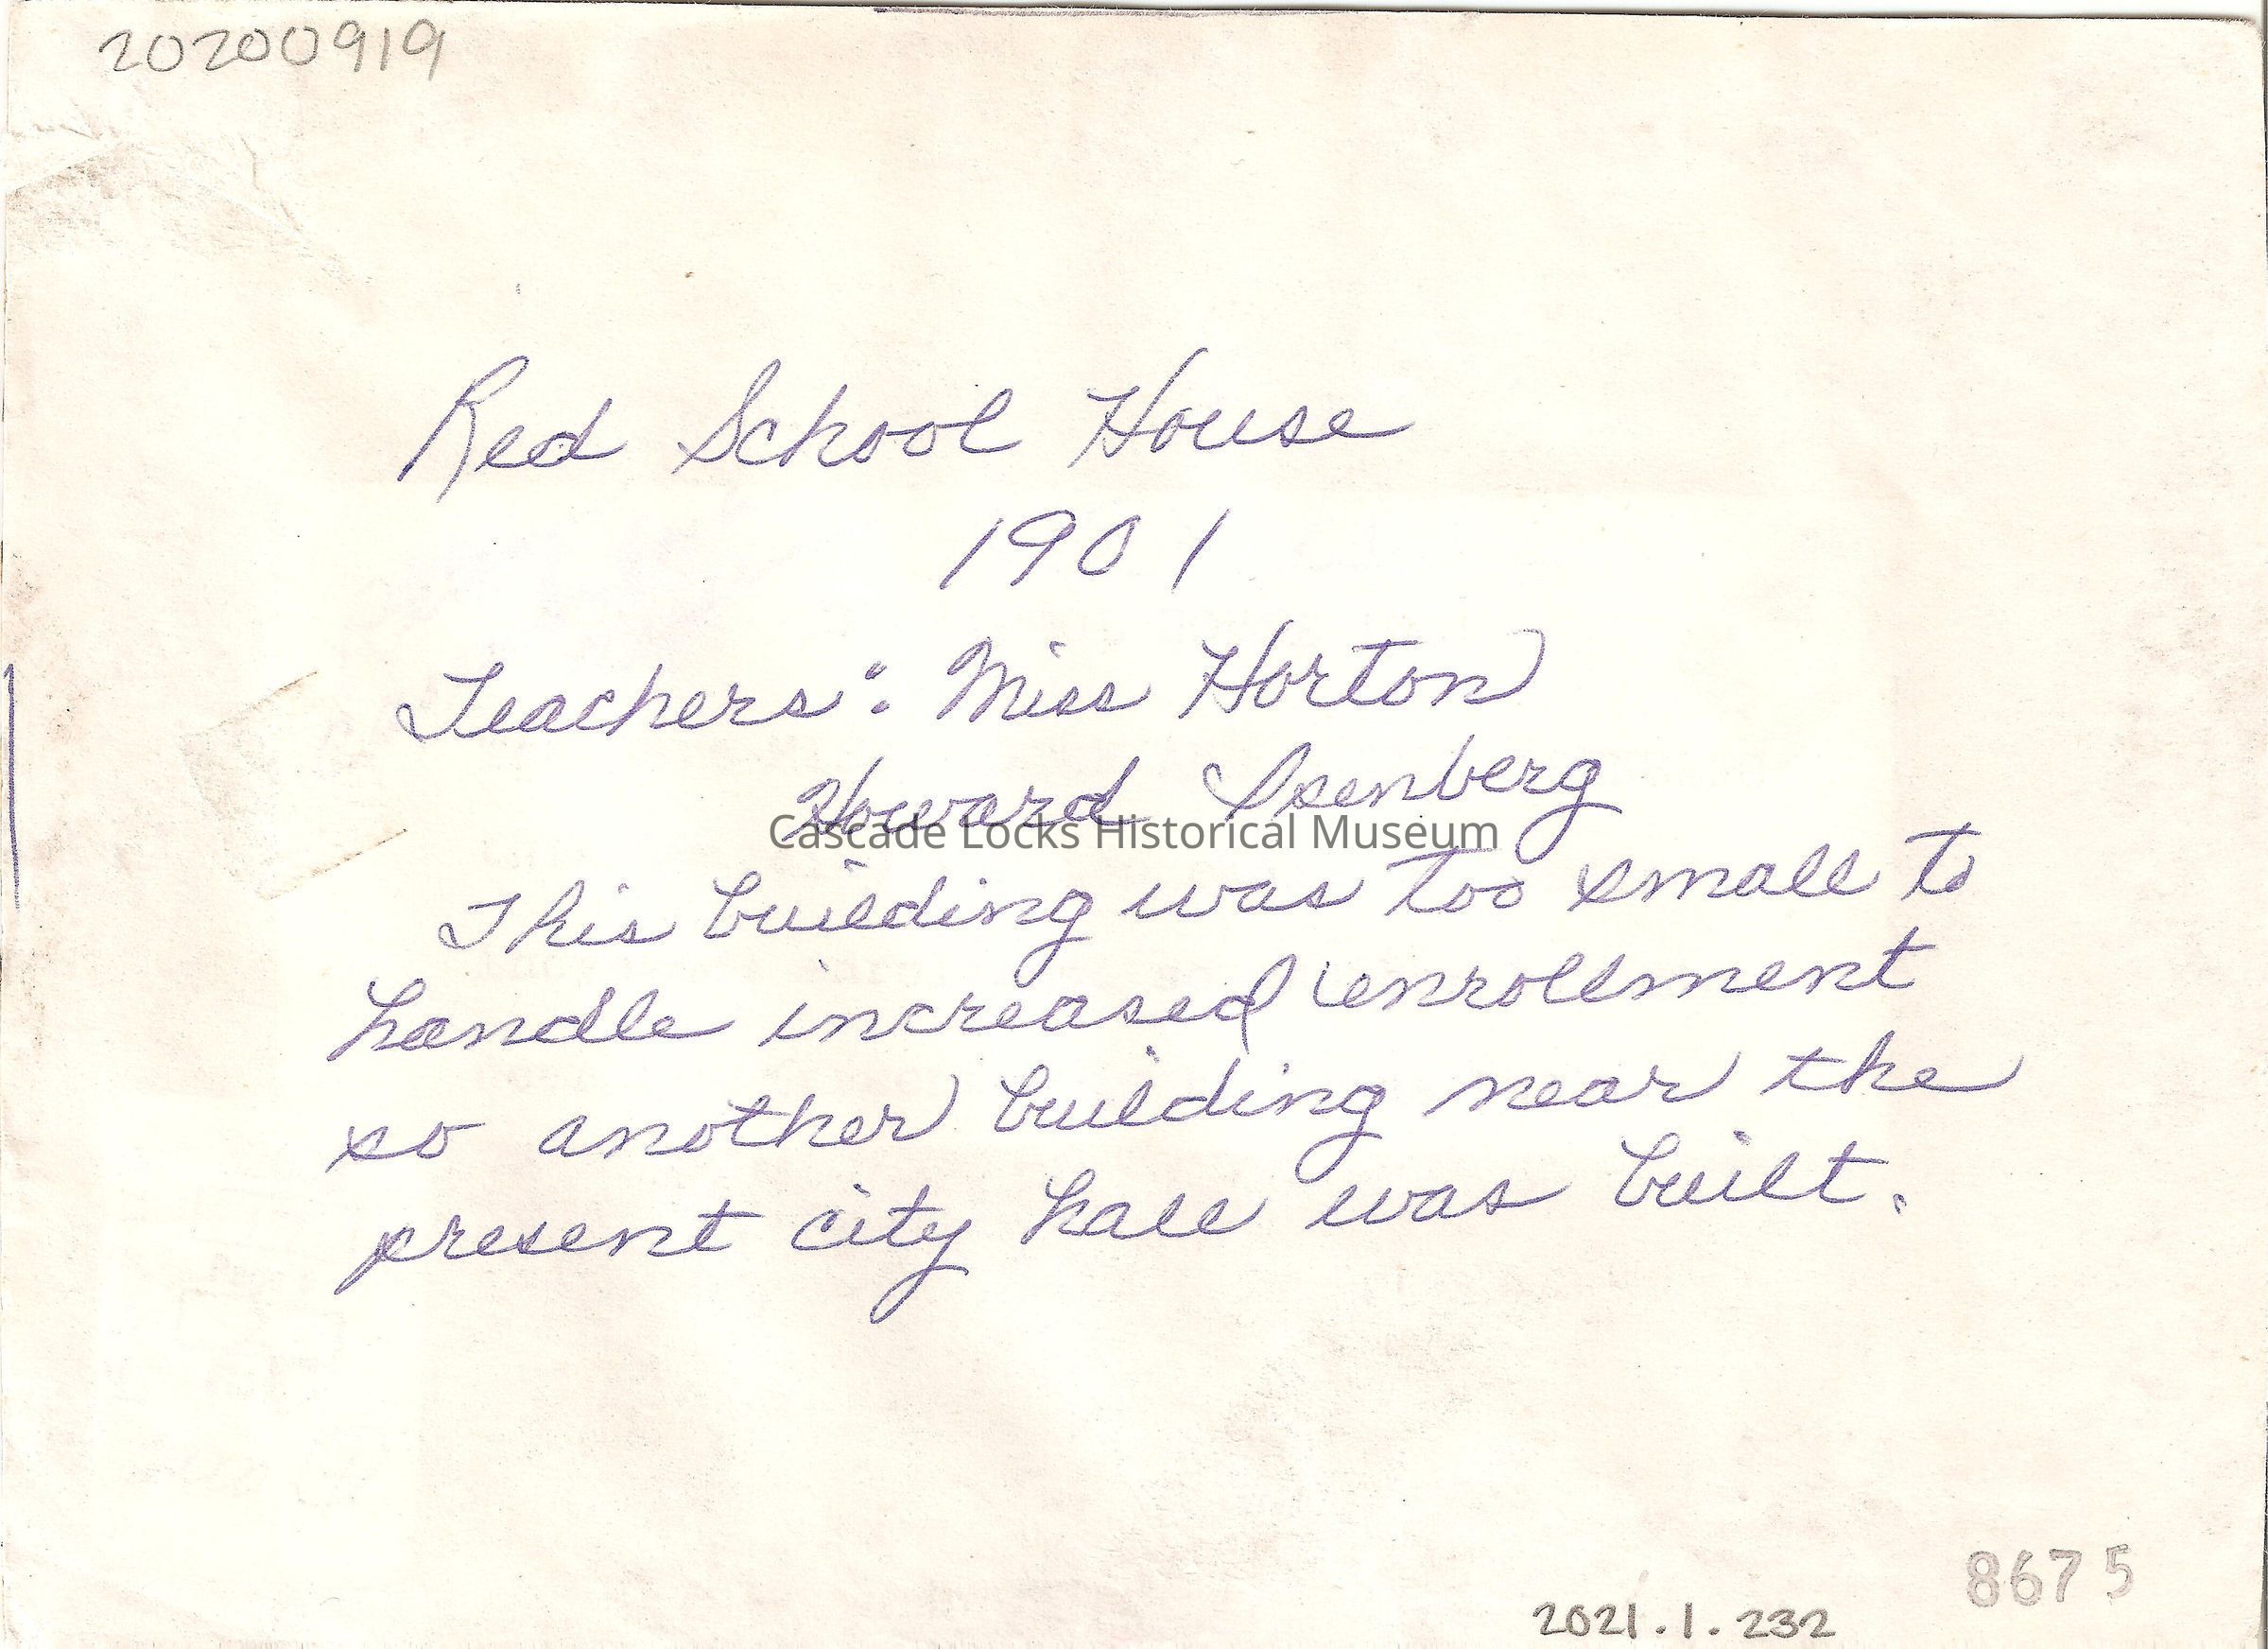 20200919
Red School House
1901
Teachers: Miss Horton
Howard Isenberg
Cascade Locks Historical Museum
This building was too small to
handle increased enrollment
so another building near the
present city hall was built.
8675
2021.1.232